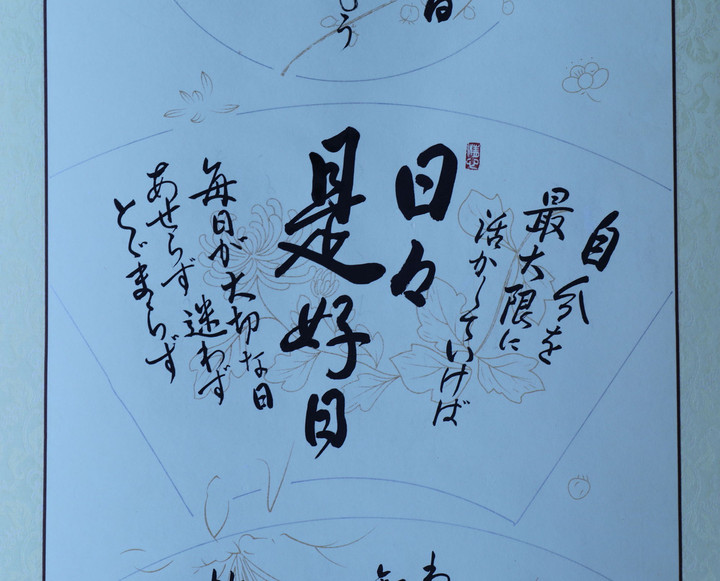 自分を
最大限に
活かしていけば
日々
是好日
毎日が大切な日
あせらず 迷わず
とどまらず